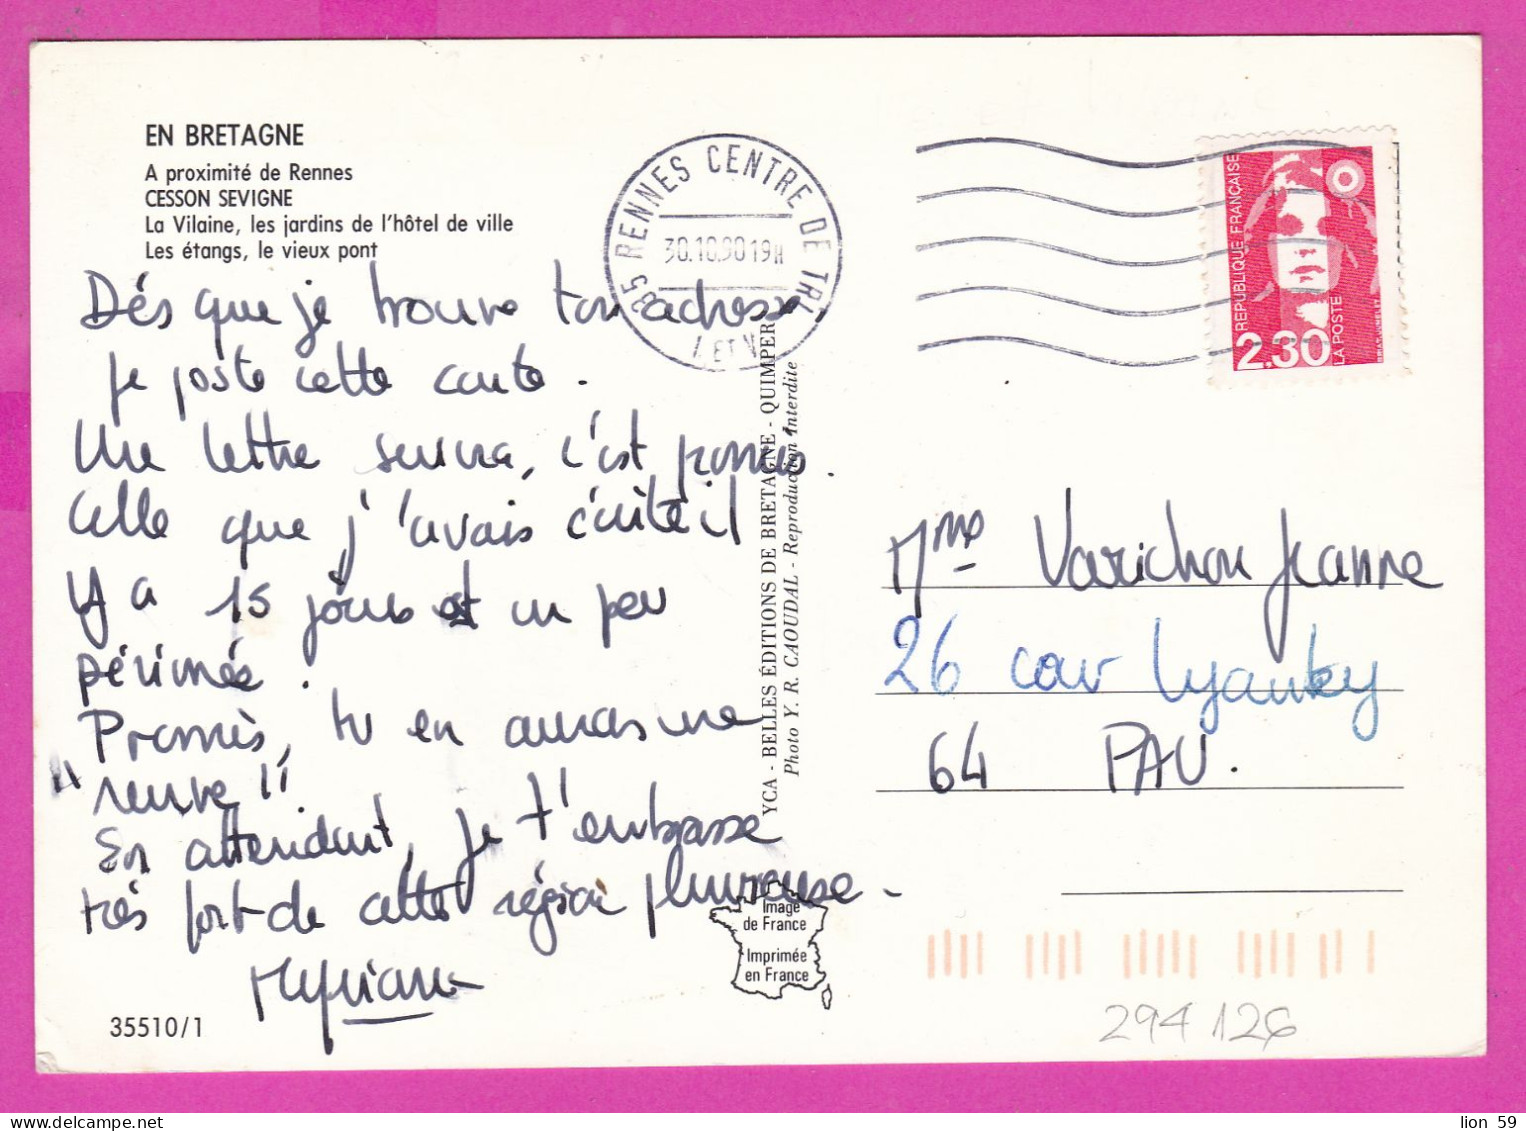 EN BRETAGNE
A proximité de Rennes
CESSON SEVIGNE
La Vilaine, les jardins de l'hôtel de ville
Les étangs, le vieux pont
Dés que je trouve ton adresse,
je poste cette carte.
Une lettre suivra, c'est promis.
Celle que j'avais écrite il
y a 15 jours est un peu
périmée.
Promis, tu en auras une
"neuve"!
En attendant, je t'embrasse
très fort de cette région pluvieuse.
Myriam
35510/1
35 RENNES CENTRE DE TRI
30.10.90 19H
I. ET V.
YCA - BELLES ÉDITIONS DE BRETAGNE - QUIMPER
Photo Y. R. CAOUDAL - Reproduction interdite
Image
de France
Imprimée
en France
REPUBLIQUE FRANÇAISE
2.30
LA POSTE
Mme Varichon Jeanne
26 cour Lyautey
64 PAU.
294 126
lion 59